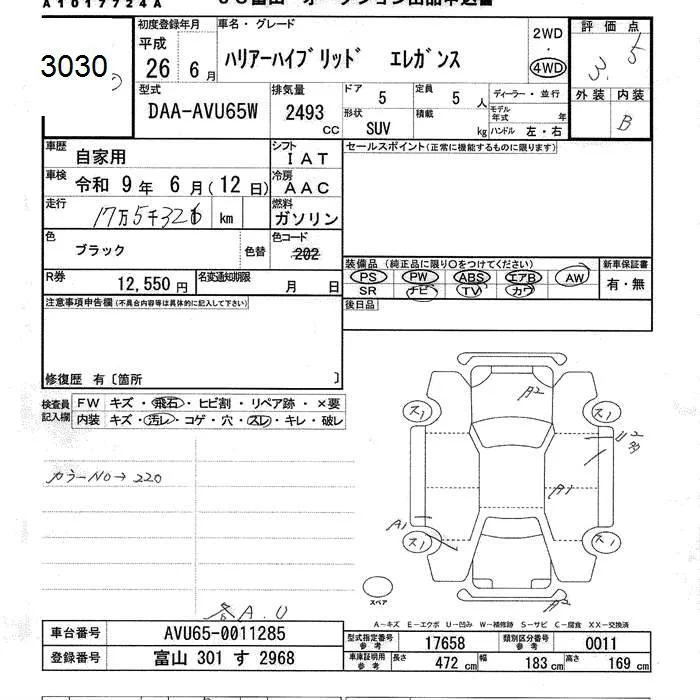 A1017724A
3030
初度登録年月
平成
26年 6月
車名・グレード
ハリアーハイブリッド エレガンス
2WD
4WD
評価点
3.5
外装 内装
B
型式
DAA-AVU65W
排気量
2493
CC
ドア
5
定員
5人
形状
SUV
積載
kg
ディーラー・並行
モデル年式 年
ハンドル 左・右
車歴
自家用
シフト
IAT
車検
令和 9年 6月(12日)
冷房
AAC
走行
17万5千326 km
燃料
ガソリン
色
ブラック
色替
色コード
202
R券
12,550円
名変通知期限
月 日
セールスポイント(正常に機能するものに限ります)
装備品 (純正品に限り〇をつけてください)
PS PW ABS エアB AW
SR ナビ TV カワ
新車保証書
有・無
後日品
注意事項申告欄(不具合内容等は具体的に記入して下さい)
修復歴 有〔箇所 〕
検査員記入欄
FW キズ・飛石・ヒビ割・リペア跡・×要
内装 キズ・汚レ・コゲ・穴・スレ・キレ・破レ
カラーNO→220
A2
ス1
ス1
U2
A1
A1
ス1
ス1
A2
スペア
A-キズ E-エクボ U-凹み W-補修跡 S-サビ C-腐食 XX-交換済
各A.U
車台番号
AVU65-0011285
登録番号
富山 301 す 2968
型式指定番号
参考
17658
類別区分番号
参考
0011
車庫証明用
参考
長さ 472 cm 幅 183 cm 高さ 169 cm